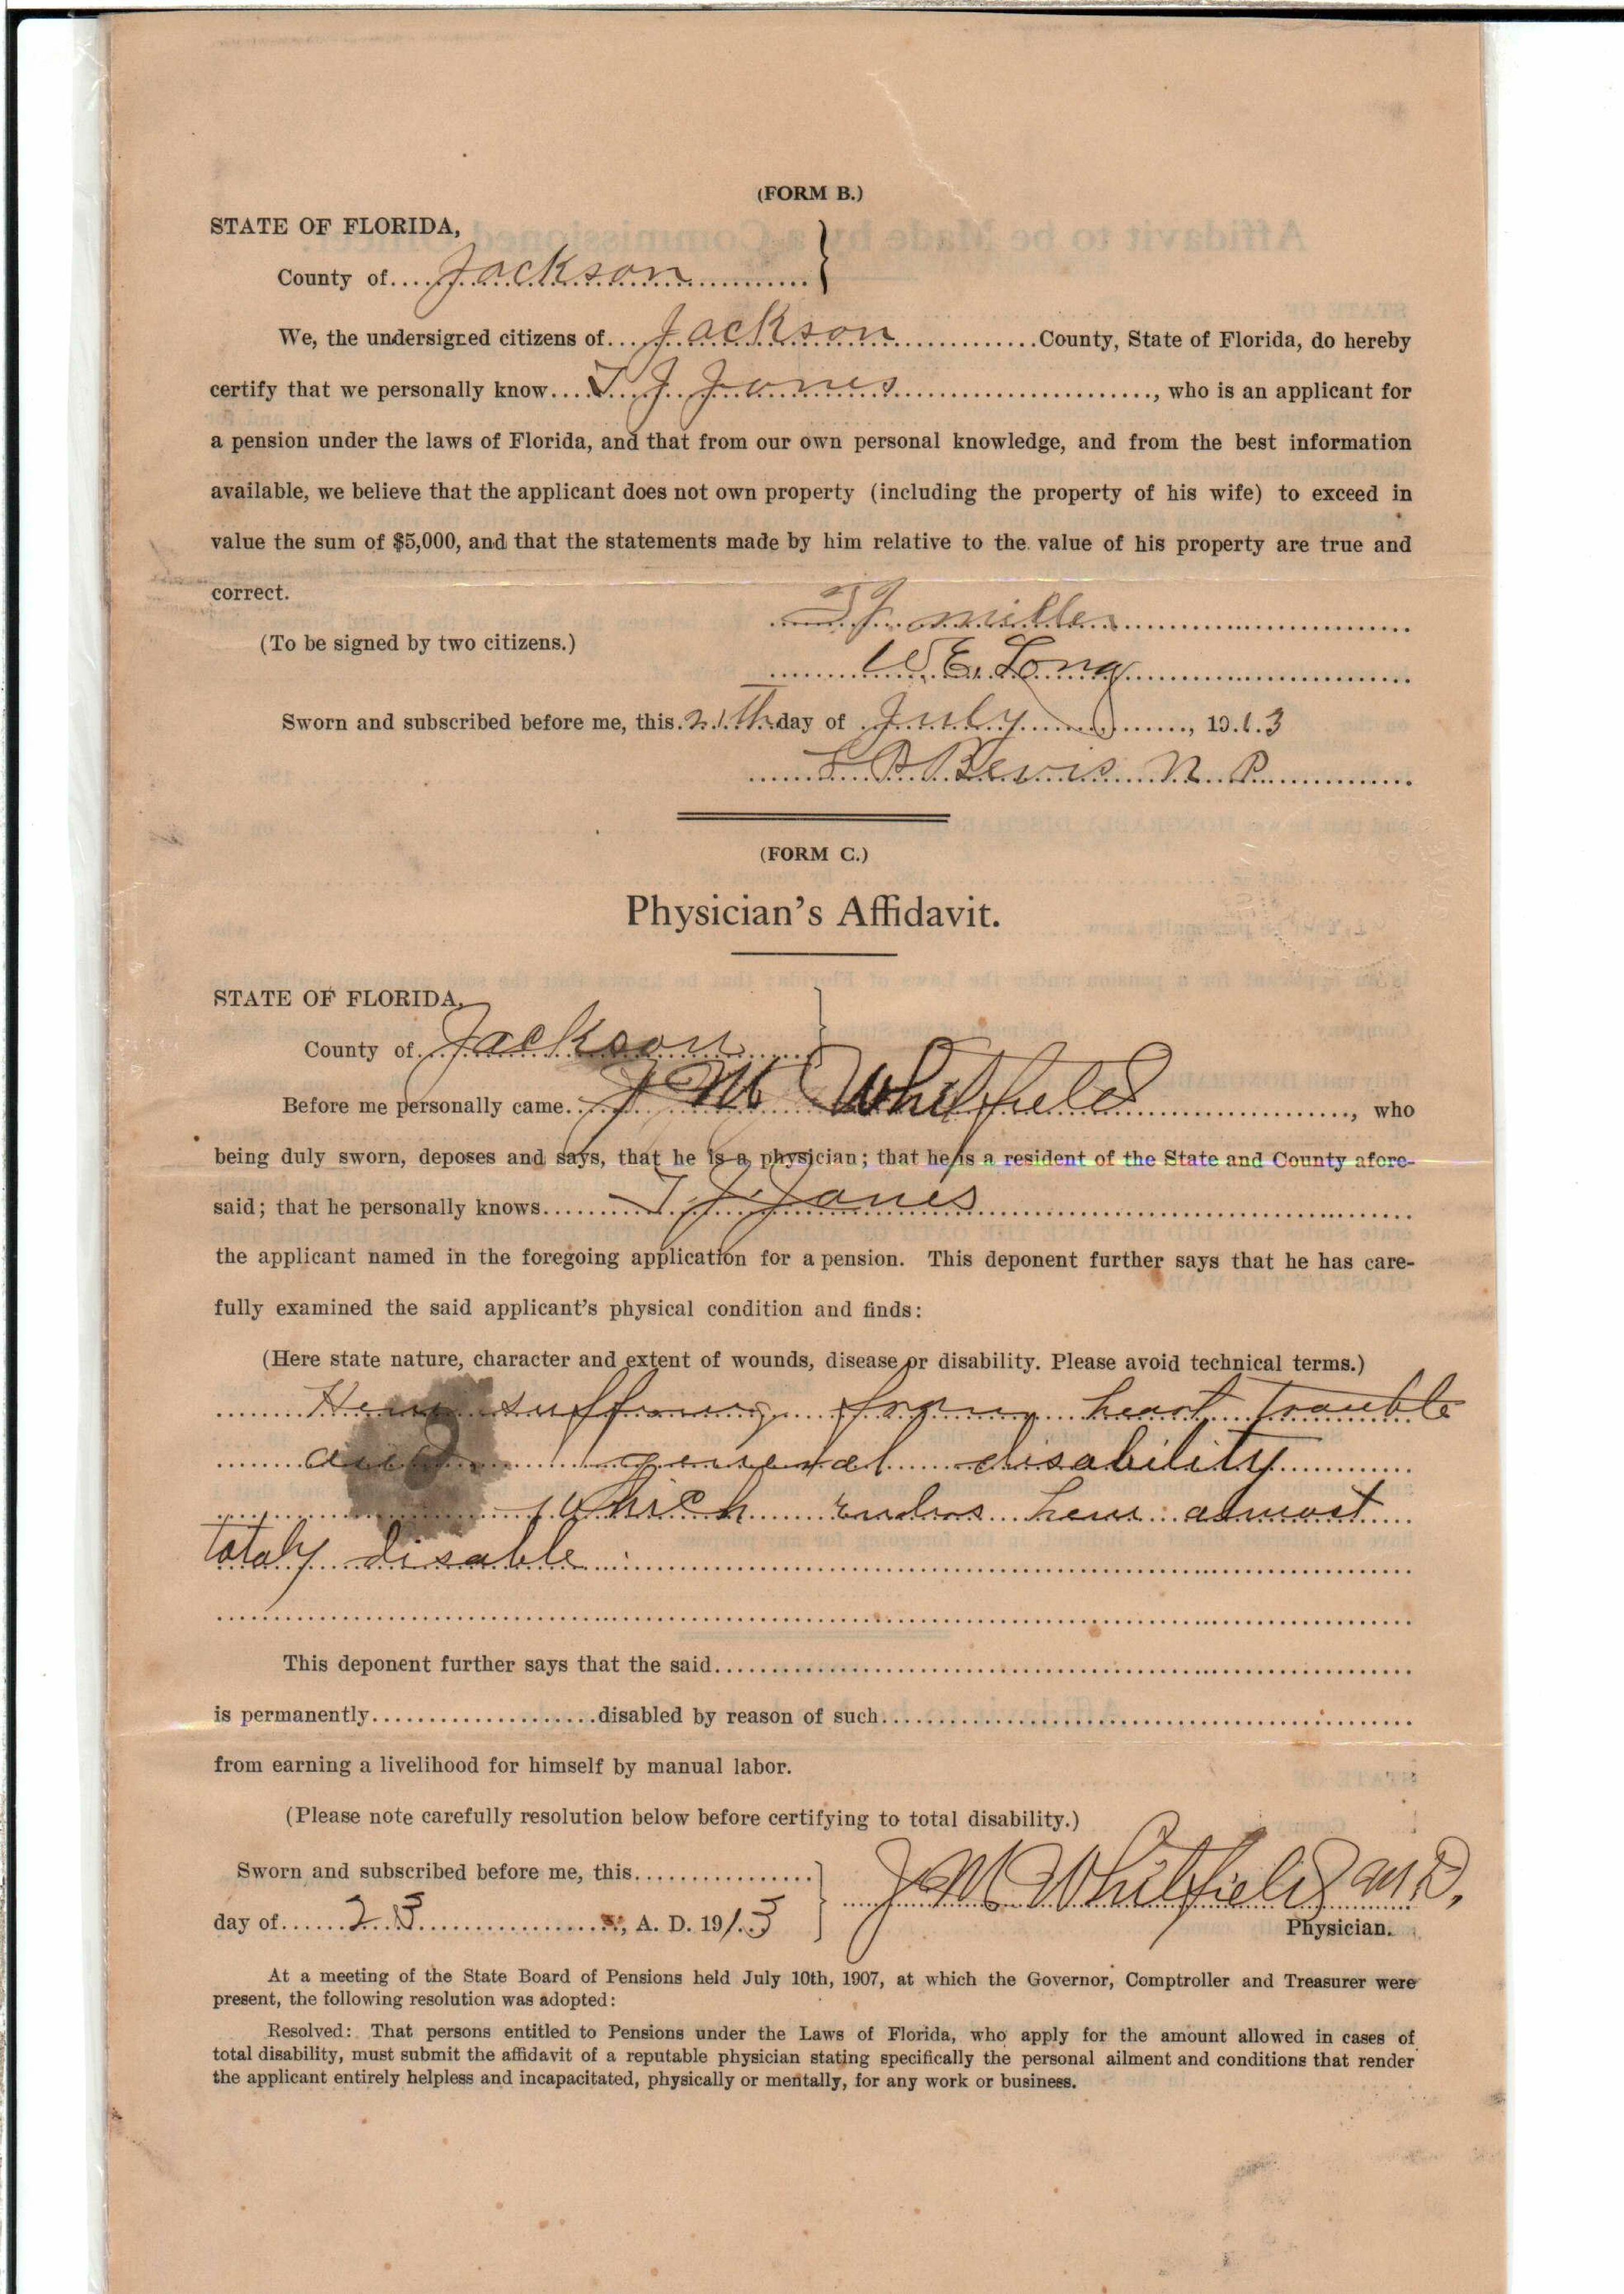 (FORM B.)
STATE OF FLORIDA,
County of Jackson
We, the undersigned citizens of Jackson County, State of Florida, do hereby
certify that we personally know T J Jones, who is an applicant for
a pension under the laws of Florida, and that from our own personal knowledge, and from the best information
available, we believe that the applicant does not own property (including the property of his wife) to exceed in
value the sum of $5,000, and that the statements made by him relative to the value of his property are true and
correct.
miller
(To be signed by two citizens.)
W E. Long
Sworn and subscribed before me, this 21th day of July, 1913
Bevis N. P.
(FORM C.)
Physician's Affidavit.
STATE OF FLORIDA,
County of Jackson
Before me personally came J M Whitfield, who
being duly sworn, deposes and says, that he is a physician; that he is a resident of the State and County afore-
said; that he personally knows T J Jones
the applicant named in the foregoing application for a pension. This deponent further says that he has care-
fully examined the said applicant's physical condition and finds:
(Here state nature, character and extent of wounds, disease or disability. Please avoid technical terms.)
suffering from heart trouble
and general disability
which renders him almost
totaly disable
This deponent further says that the said
is permanently disabled by reason of such
from earning a livelihood for himself by manual labor.
(Please note carefully resolution below before certifying to total disability.)
Sworn and subscribed before me, this
J M Whitfield M.D,
day of 23, A. D. 1913
Physician.
At a meeting of the State Board of Pensions held July 10th, 1907, at which the Governor, Comptroller and Treasurer were
present, the following resolution was adopted:
Resolved: That persons entitled to Pensions under the Laws of Florida, who apply for the amount allowed in cases of
total disability, must submit the affidavit of a reputable physician stating specifically the personal ailment and conditions that render
the applicant entirely helpless and incapacitated, physically or mentally, for any work or business.